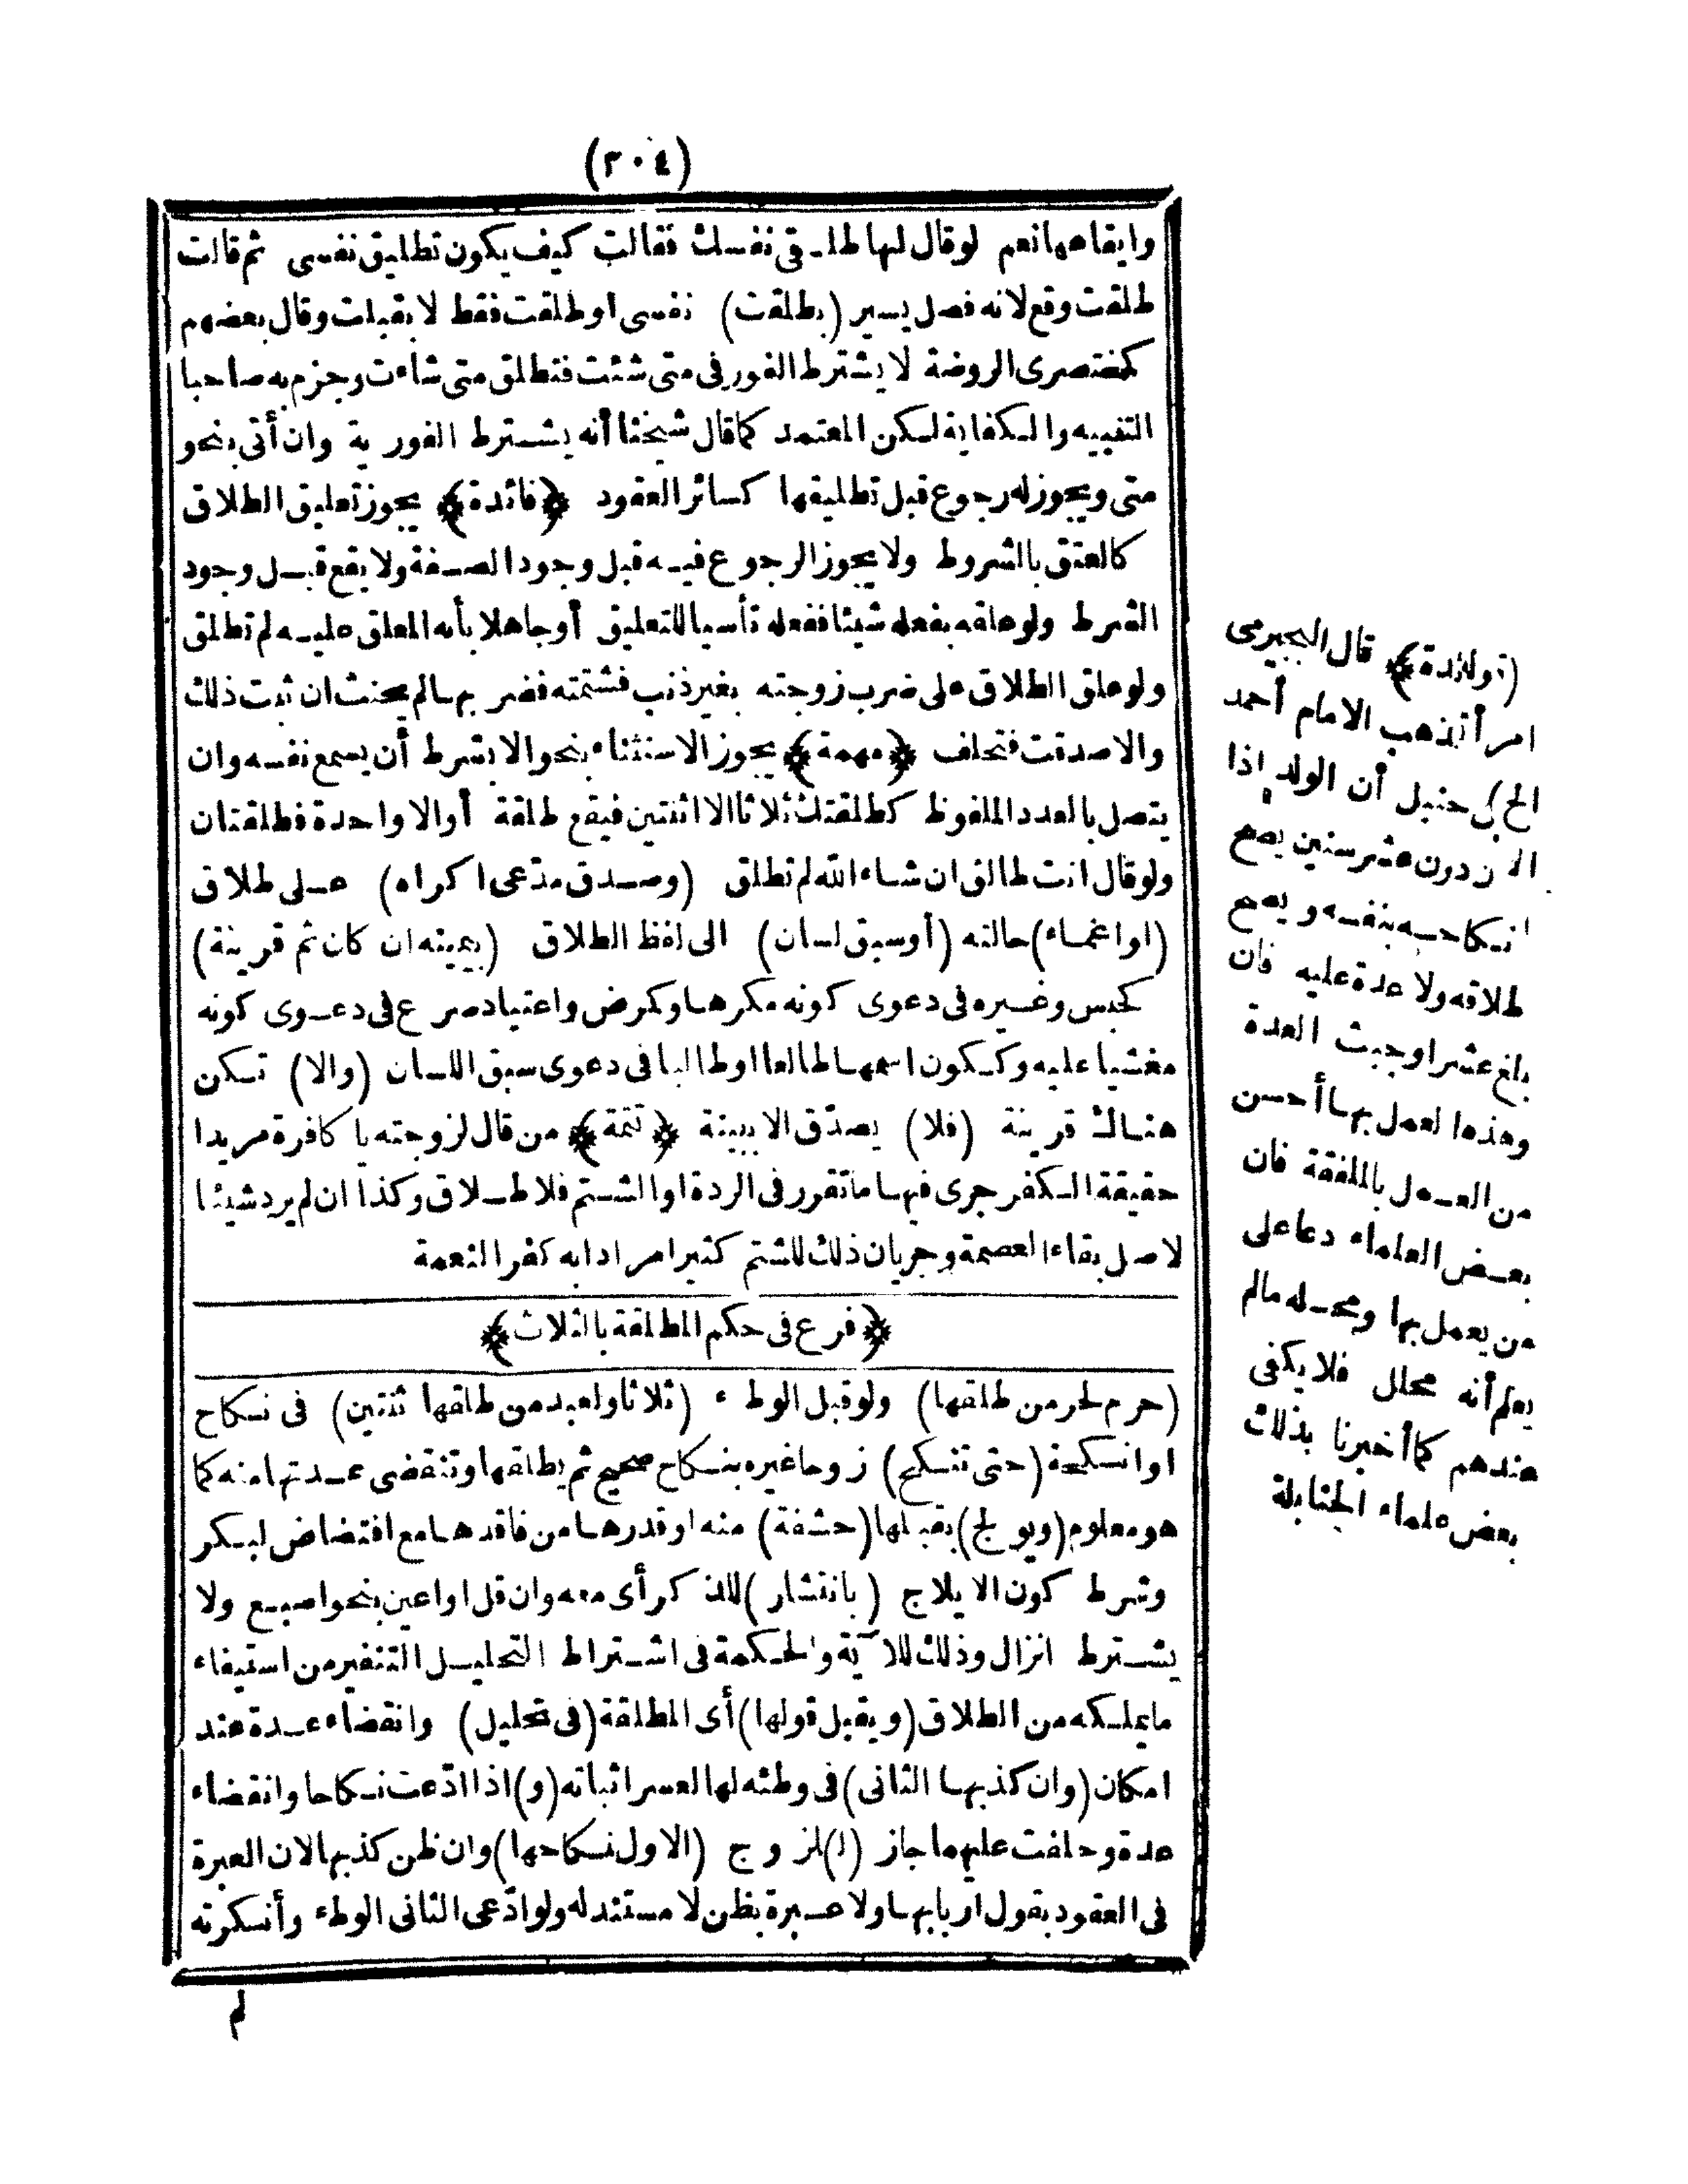 (٢٠٤)
وايقاعها نعم لوقال لها طلقى نفسك فقالت كيف يكون تطليق نفسى ثم قالت
طلقت وقع لانه فصل يسير (بطلقت) نفسى او طلقت فقط لا بقبلت وقال بعضهم
كمختصرى الروضة لا يشترط الفور فى متى شئت فتطلق متى شاءت وجزم به صاحبا
التنبيه والكفاية لكن المعتمد كماقال شيخنا أنه يشترط الفورية وان أتى بنحو
متى ويجوز له رجوع قبل تطليقها كسائر العقود ﴿فائدة﴾ يجوز تعليق الطلاق
كالعتق بالشروط ولا يجوز الرجوع فيه قبل وجود الصفة ولا يقع قبل وجود
الشرط ولو علقه بفعله شيئا ففعله ناسيا للتعليق أو جاهلا بأنه المعلق عليه لم تطلق
ولو علق الطلاق على ضرب زوجته بغير ذنب فشتمته فضربها لم يحنث ان ثبت ذلك
والا صدقت فتحلف ﴿مهمة﴾ يجوز الاستثناء بنحو الا بشرط أن يسمع نفسه وان
يتصل بالعدد الملفوظ كطلقتك ثلاثا الا اثنتين فيقع طلقة أو الا واحدة فطلقتان
ولو قال انت طالق ان شاء الله لم تطلق (وصدق مدّعى اكراه) على طلاق
(او اغماء) حالته (أو سبق لسان) الى لفظ الطلاق (بيمينه ان كان ثم قرينة)
كحبس وغيره فى دعوى كونه مكرها وكمرض واعتياد صرع فى دعوى كونه
مغشيا عليه وككون اسمها طالعا او طالبا فى دعوى سبق اللسان (والا) تكن
هناك قرينة (فلا) يصدّق الا ببينة ﴿تتمة﴾ من قال لزوجته يا كافرة مريدا
حقيقة الكفر جرى فيها ما تقرر فى الردة او الشتم فلا طلاق وكذا ان لم يرد شيئا
لاصل بقاء العصمة وجريان ذلك للشتم كثيرا مرادا به كفر النعمة
﴿فرع فى حكم المطلقة بالثلاث﴾
(حرم لحر من طلقها) ولو قبل الوطء (ثلاثا ولعبد من طلقها ثنتين) فى نكاح
او انكحة (حتى تنكح) زوجا غيره بنكاح صحيح ثم يطلقها وتنقضى عدتها منه كما
هو معلوم (ويولج) بقبلها (حشفة) منه او قدرها من فاقدها مع افتضاض لبكر
وشرط كون الايلاج (بانتشار) للذكر أى معه وان قل او اعين بنحو اصبع ولا
يشترط انزال وذلك للآية والحكمة فى اشتراط التحليل التنفير من استيفاء
ما يملكه من الطلاق (ويقبل قولها) أى المطلقة (فى تحليل) وانقضاء عدة عند
امكان (وان كذبها الثانى) فى وطئه لها لعسر اثباته (و) اذا ادّعت نكاحا وانقضاء
عدة وحلفت عليهما جاز (ا) لزوج (الاول نكاحها) وان ظن كذبها لان العبرة
فى العقود بقول اربابها ولا عبرة بظن لا مستند له ولو ادّعى الثانى الوطء وأنكرته
لم
قال البجيرمى
مذهب الامام أحمد
حنبل أن الولد اذا
دون عشر سنين يصح
نكاحه بنفسه ويصح
طلاقه ولا عدة عليه فان
بلغ عشرا وجبت العدة
لعمل بها أحسن
من العمل بالملفقة فان
بعض العلماء دعا على
من يعمل بها ومحله مالم
يعلم أنه محلل فلا يكفى
عندهم كما أخبرنا بذلك
بعض علماء الحنابلة